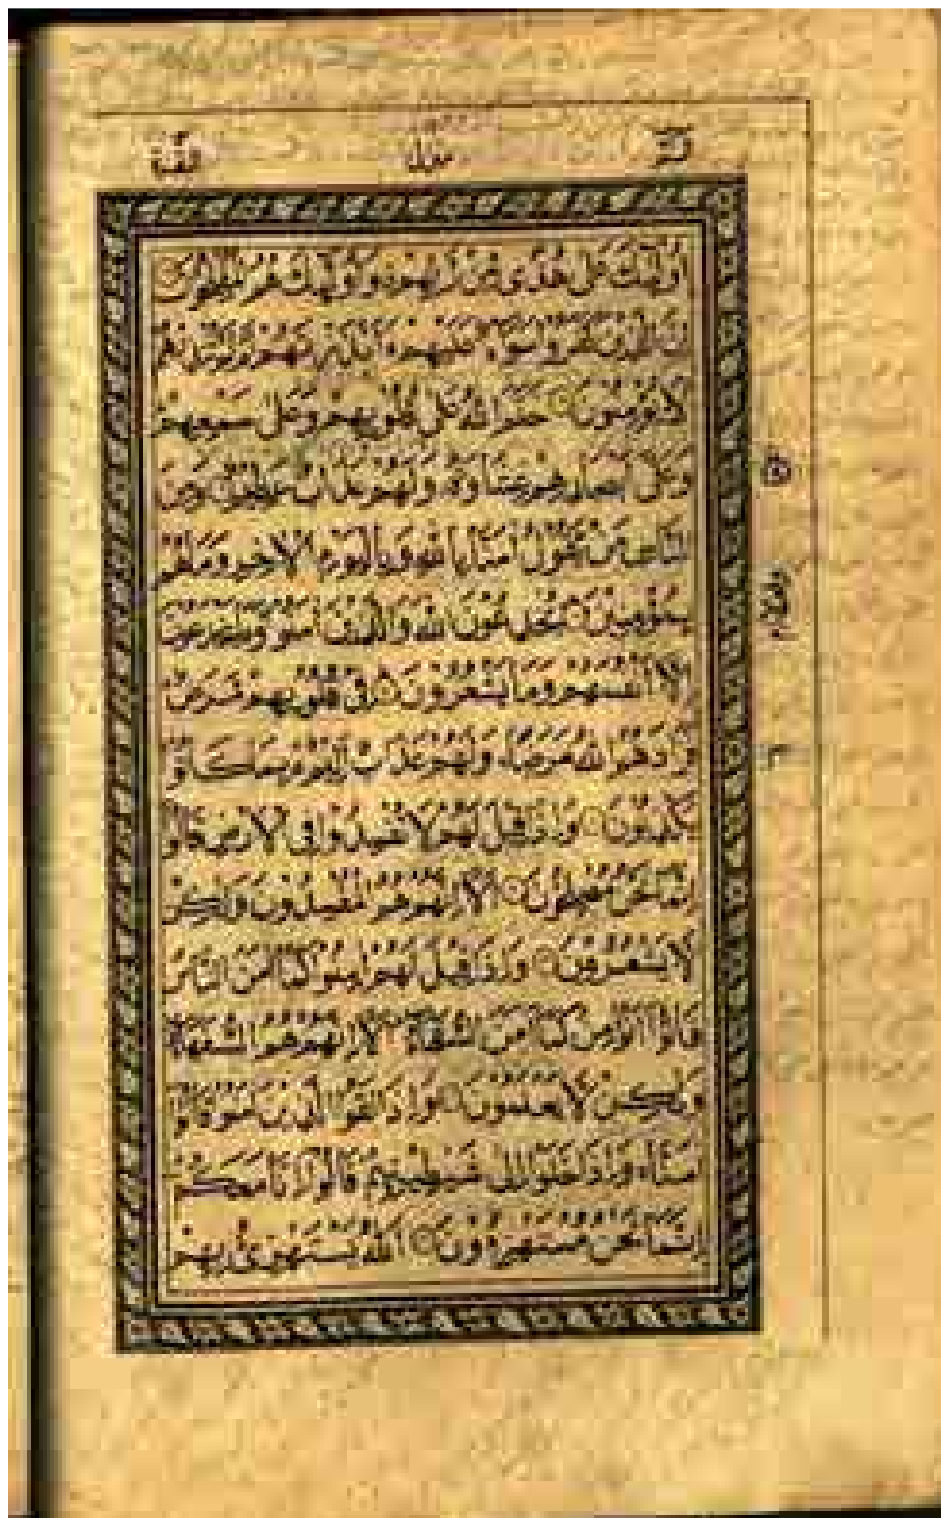 الٓمّٓ منزل ١ البقرة
أُولٰٓئِكَ عَلٰى هُدًى مِّنْ رَّبِّهِمْ وَأُولٰٓئِكَ هُمُ الْمُفْلِحُوْنَ
إِنَّ الَّذِيْنَ كَفَرُوْا سَوَآءٌ عَلَيْهِمْ ءَأَنْذَرْتَهُمْ أَمْ لَمْ تُنْذِرْهُمْ
لَا يُؤْمِنُوْنَ خَتَمَ اللّٰهُ عَلٰى قُلُوْبِهِمْ وَعَلٰى سَمْعِهِمْ
وَعَلٰٓى أَبْصَارِهِمْ غِشَاوَةٌ وَّلَهُمْ عَذَابٌ عَظِيْمٌ وَمِنَ
النَّاسِ مَنْ يَّقُوْلُ اٰمَنَّا بِاللّٰهِ وَبِالْيَوْمِ الْاٰخِرِ وَمَا هُمْ
بِمُؤْمِنِيْنَ يُخٰدِعُوْنَ اللّٰهَ وَالَّذِيْنَ اٰمَنُوْا وَمَا يَخْدَعُوْنَ
إِلَّآ أَنْفُسَهُمْ وَمَا يَشْعُرُوْنَ فِيْ قُلُوْبِهِمْ مَّرَضٌ
فَزَادَهُمُ اللّٰهُ مَرَضًا وَلَهُمْ عَذَابٌ أَلِيْمٌ بِمَا كَانُوْا
يَكْذِبُوْنَ وَإِذَا قِيْلَ لَهُمْ لَا تُفْسِدُوْا فِي الْأَرْضِ قَالُوْٓا
إِنَّمَا نَحْنُ مُصْلِحُوْنَ أَلَآ إِنَّهُمْ هُمُ الْمُفْسِدُوْنَ وَلٰكِنْ
لَّا يَشْعُرُوْنَ وَإِذَا قِيْلَ لَهُمْ اٰمِنُوْا كَمَآ اٰمَنَ النَّاسُ
قَالُوْٓا أَنُؤْمِنُ كَمَآ اٰمَنَ السُّفَهَآءُ أَلَآ إِنَّهُمْ هُمُ السُّفَهَآءُ
وَلٰكِنْ لَّا يَعْلَمُوْنَ وَإِذَا لَقُوا الَّذِيْنَ اٰمَنُوْا قَالُوْٓا
اٰمَنَّا وَإِذَا خَلَوْا إِلٰى شَيٰطِيْنِهِمْ قَالُوْٓا إِنَّا مَعَكُمْ
إِنَّمَا نَحْنُ مُسْتَهْزِءُوْنَ اللّٰهُ يَسْتَهْزِئُ بِهِمْ